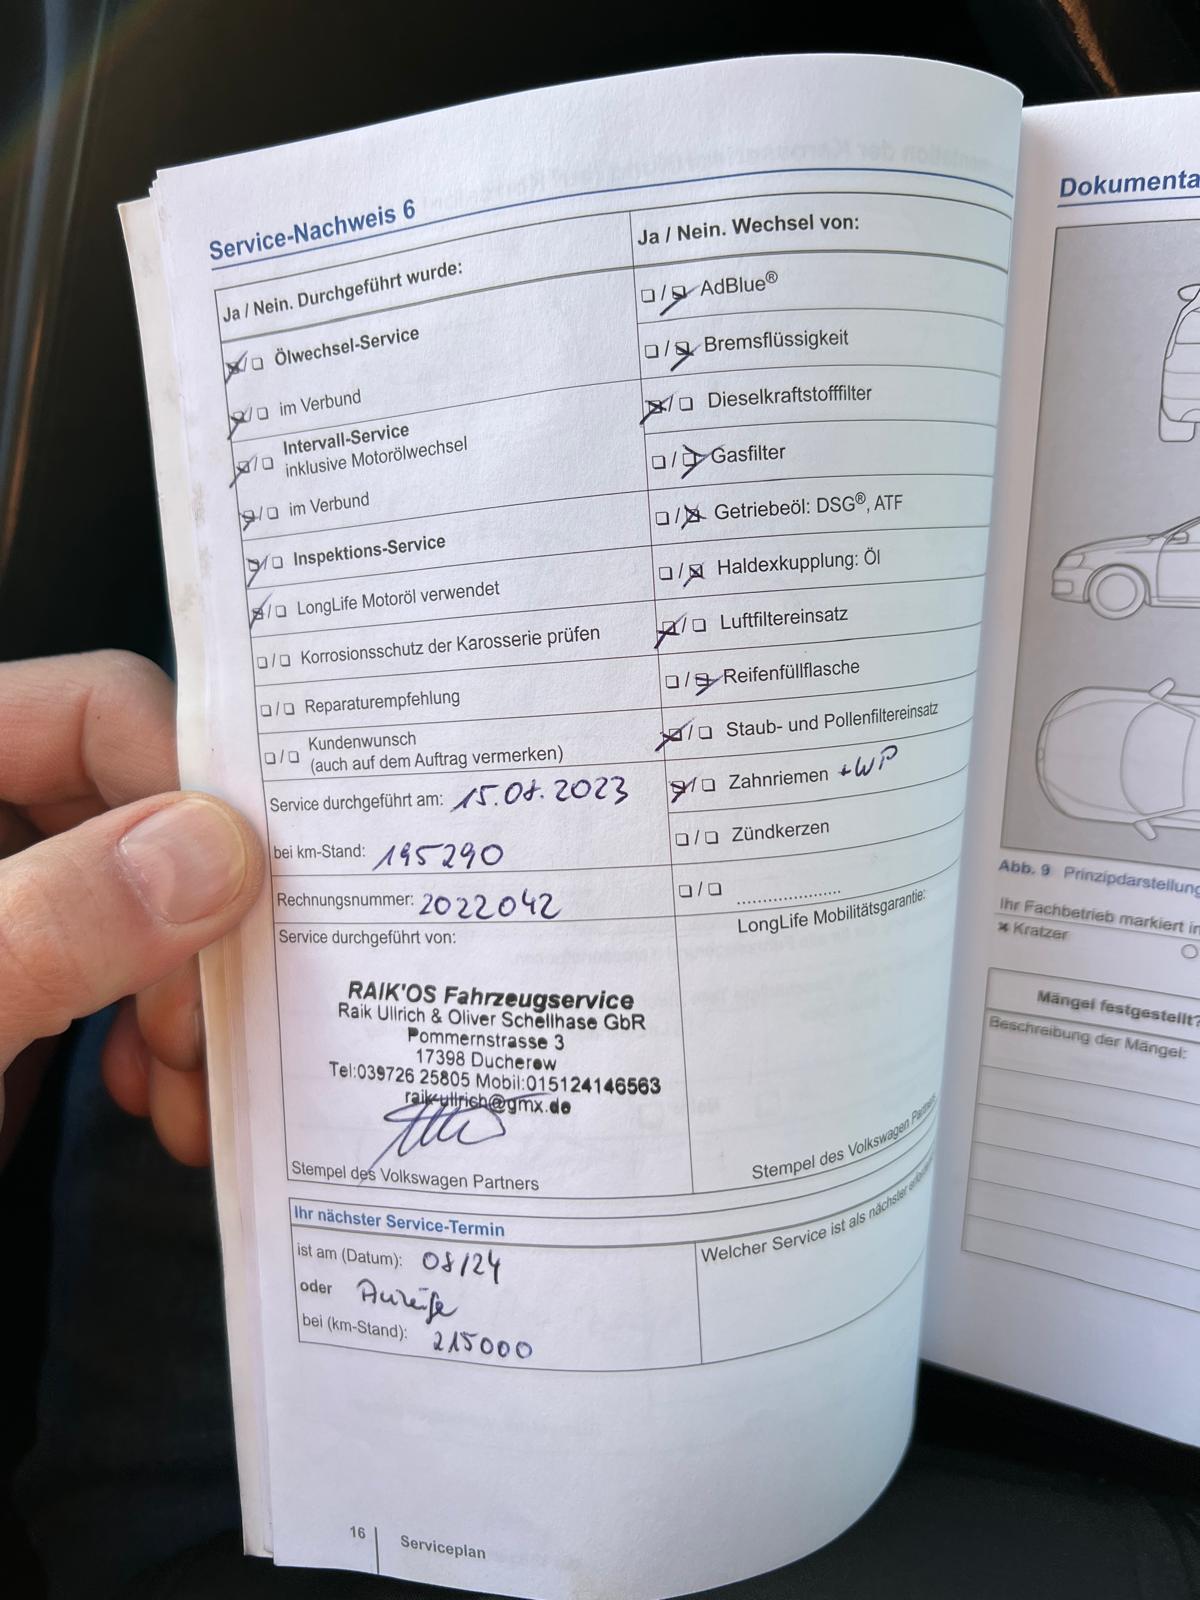 Service-Nachweis 6
Ja / Nein. Durchgeführt wurde:
Ölwechsel-Service
im Verbund
Intervall-Service
inklusive Motorölwechsel
im Verbund
Inspektions-Service
LongLife Motoröl verwendet
Korrosionsschutz der Karosserie prüfen
Reparaturempfehlung
Kundenwunsch
(auch auf dem Auftrag vermerken)
Service durchgeführt am: 15.08.2023
bei km-Stand: 195290
Rechnungsnummer: 2022042
Service durchgeführt von:
RAIK'OS Fahrzeugservice
Raik Ullrich & Oliver Schellhase GbR
Pommernstrasse 3
17398 Ducherow
Tel:039726 25805 Mobil:015124146563
raik-ullrich@gmx.de
Stempel des Volkswagen Partners
Ja / Nein. Wechsel von:
AdBlue®
Bremsflüssigkeit
Dieselkraftstofffilter
Gasfilter
Getriebeöl: DSG®, ATF
Haldexkupplung: Öl
Luftfiltereinsatz
Reifenfüllflasche
Staub- und Pollenfiltereinsatz
Zahnriemen +WP
Zündkerzen
LongLife Mobilitätsgarantie:
Stempel des Volkswagen Partners
Ihr nächster Service-Termin
ist am (Datum): 08/24
oder Anzeige
bei (km-Stand): 215000
Welcher Service ist als nächster
16
Serviceplan
Dokumenta
Abb. 9 Prinzipdarstellung
Ihr Fachbetrieb markiert in
Kratzer
Mängel festgestellt?
Beschreibung der Mängel: